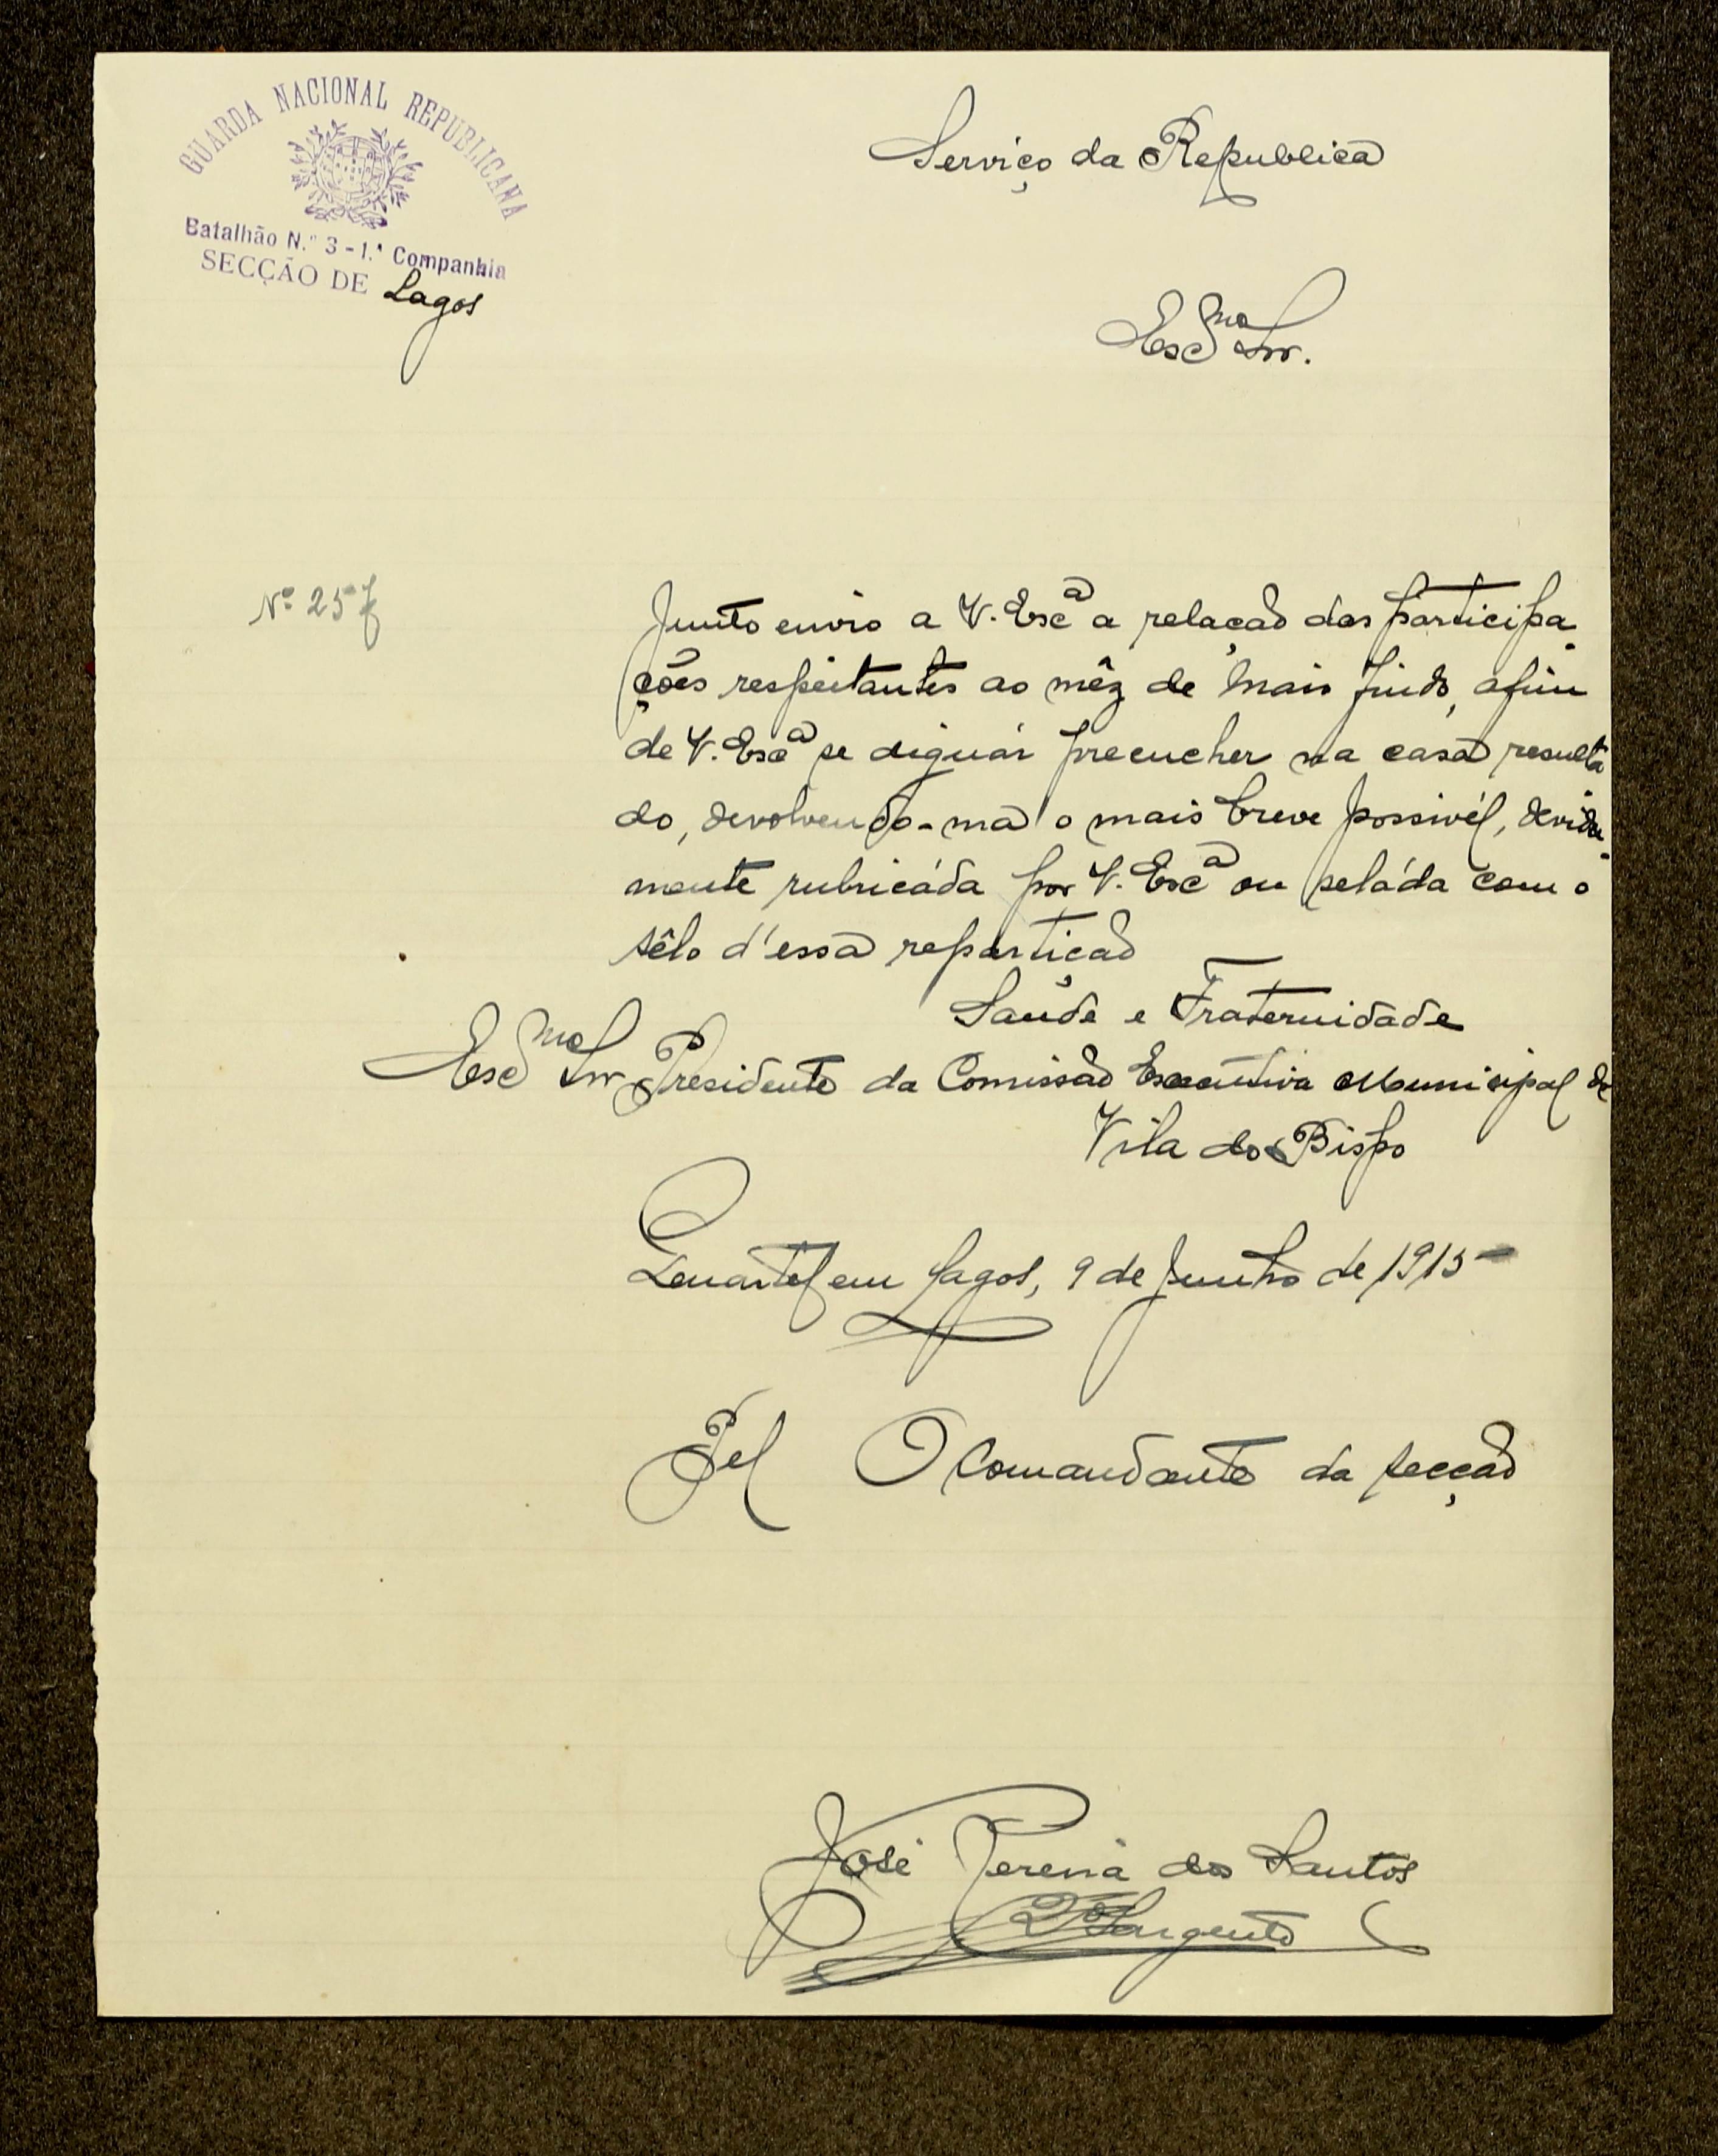 GUARDA NACIONAL REPUBLICANA
Batalhão N.º 3 - 1.ª Companhia
SECÇÃO DE Lagos
Serviço da Republica
Exc.mo Snr.
Nº 257
Junto envio a V. Exc.ª a relação das participa-
ções respeitantes ao mêz de Maio findo, afim
de V. Exc.ª se diguár preencher na casa resulta
do, devolvendo-ma o mais breve possivél, devida-
mente rubricáda por V. Exc.ª ou seláda com o
sêlo d'essa repartição
Saúde e Fraternidade
Exc.mo Snr. Presidente da Comissão Executiva Municipal de
Vila do Bispo
Quartel em Lagos, 9 de Junho de 1915
Pel O Comandante da secção
José Pereira dos Santos
2º Sargento